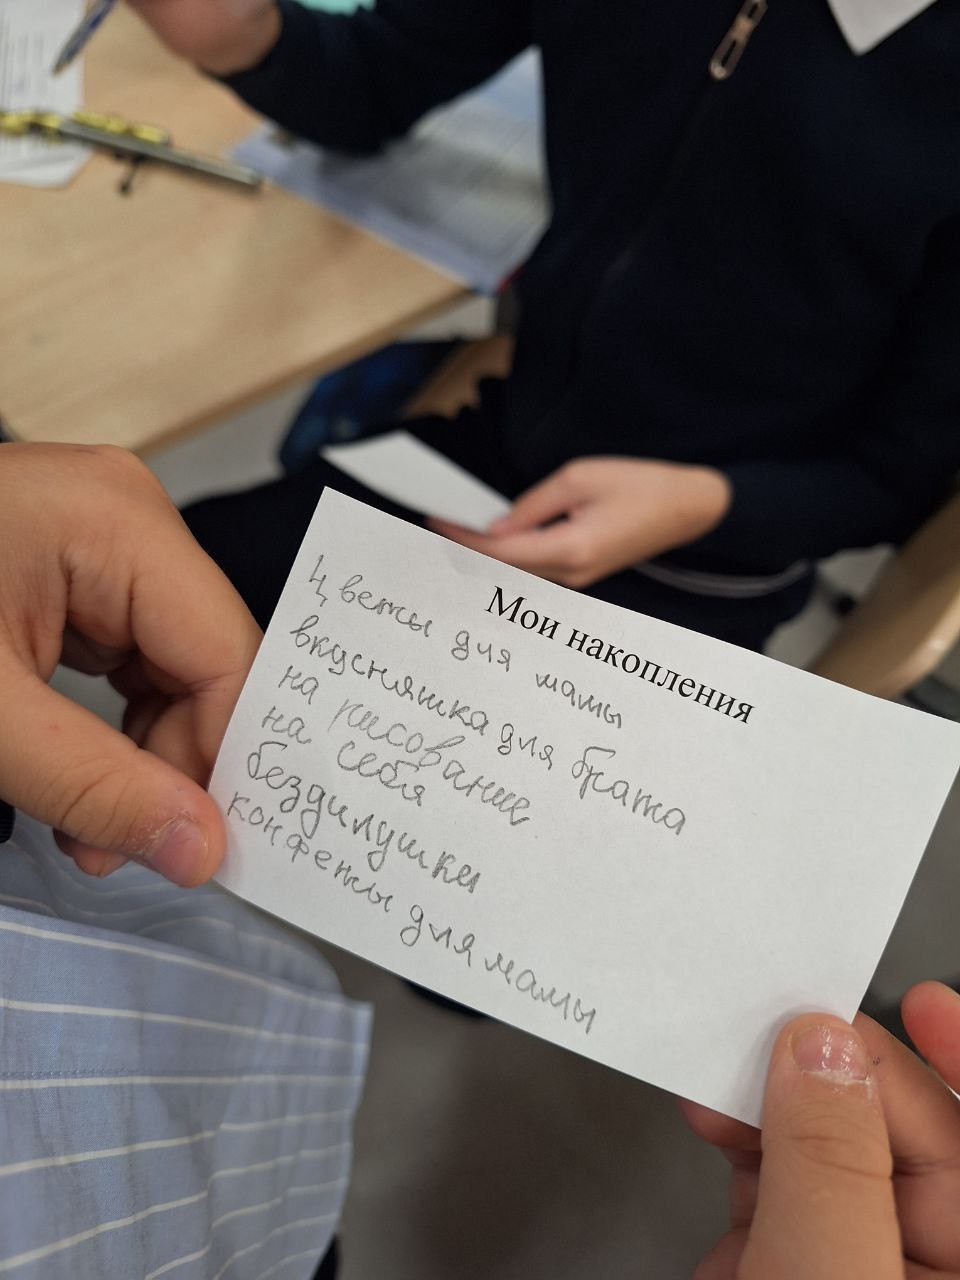 Мои накопления
Цветы для мамы
вкусняшка для брата
на рисование
на себя
бездилушки
конфеты для мамы